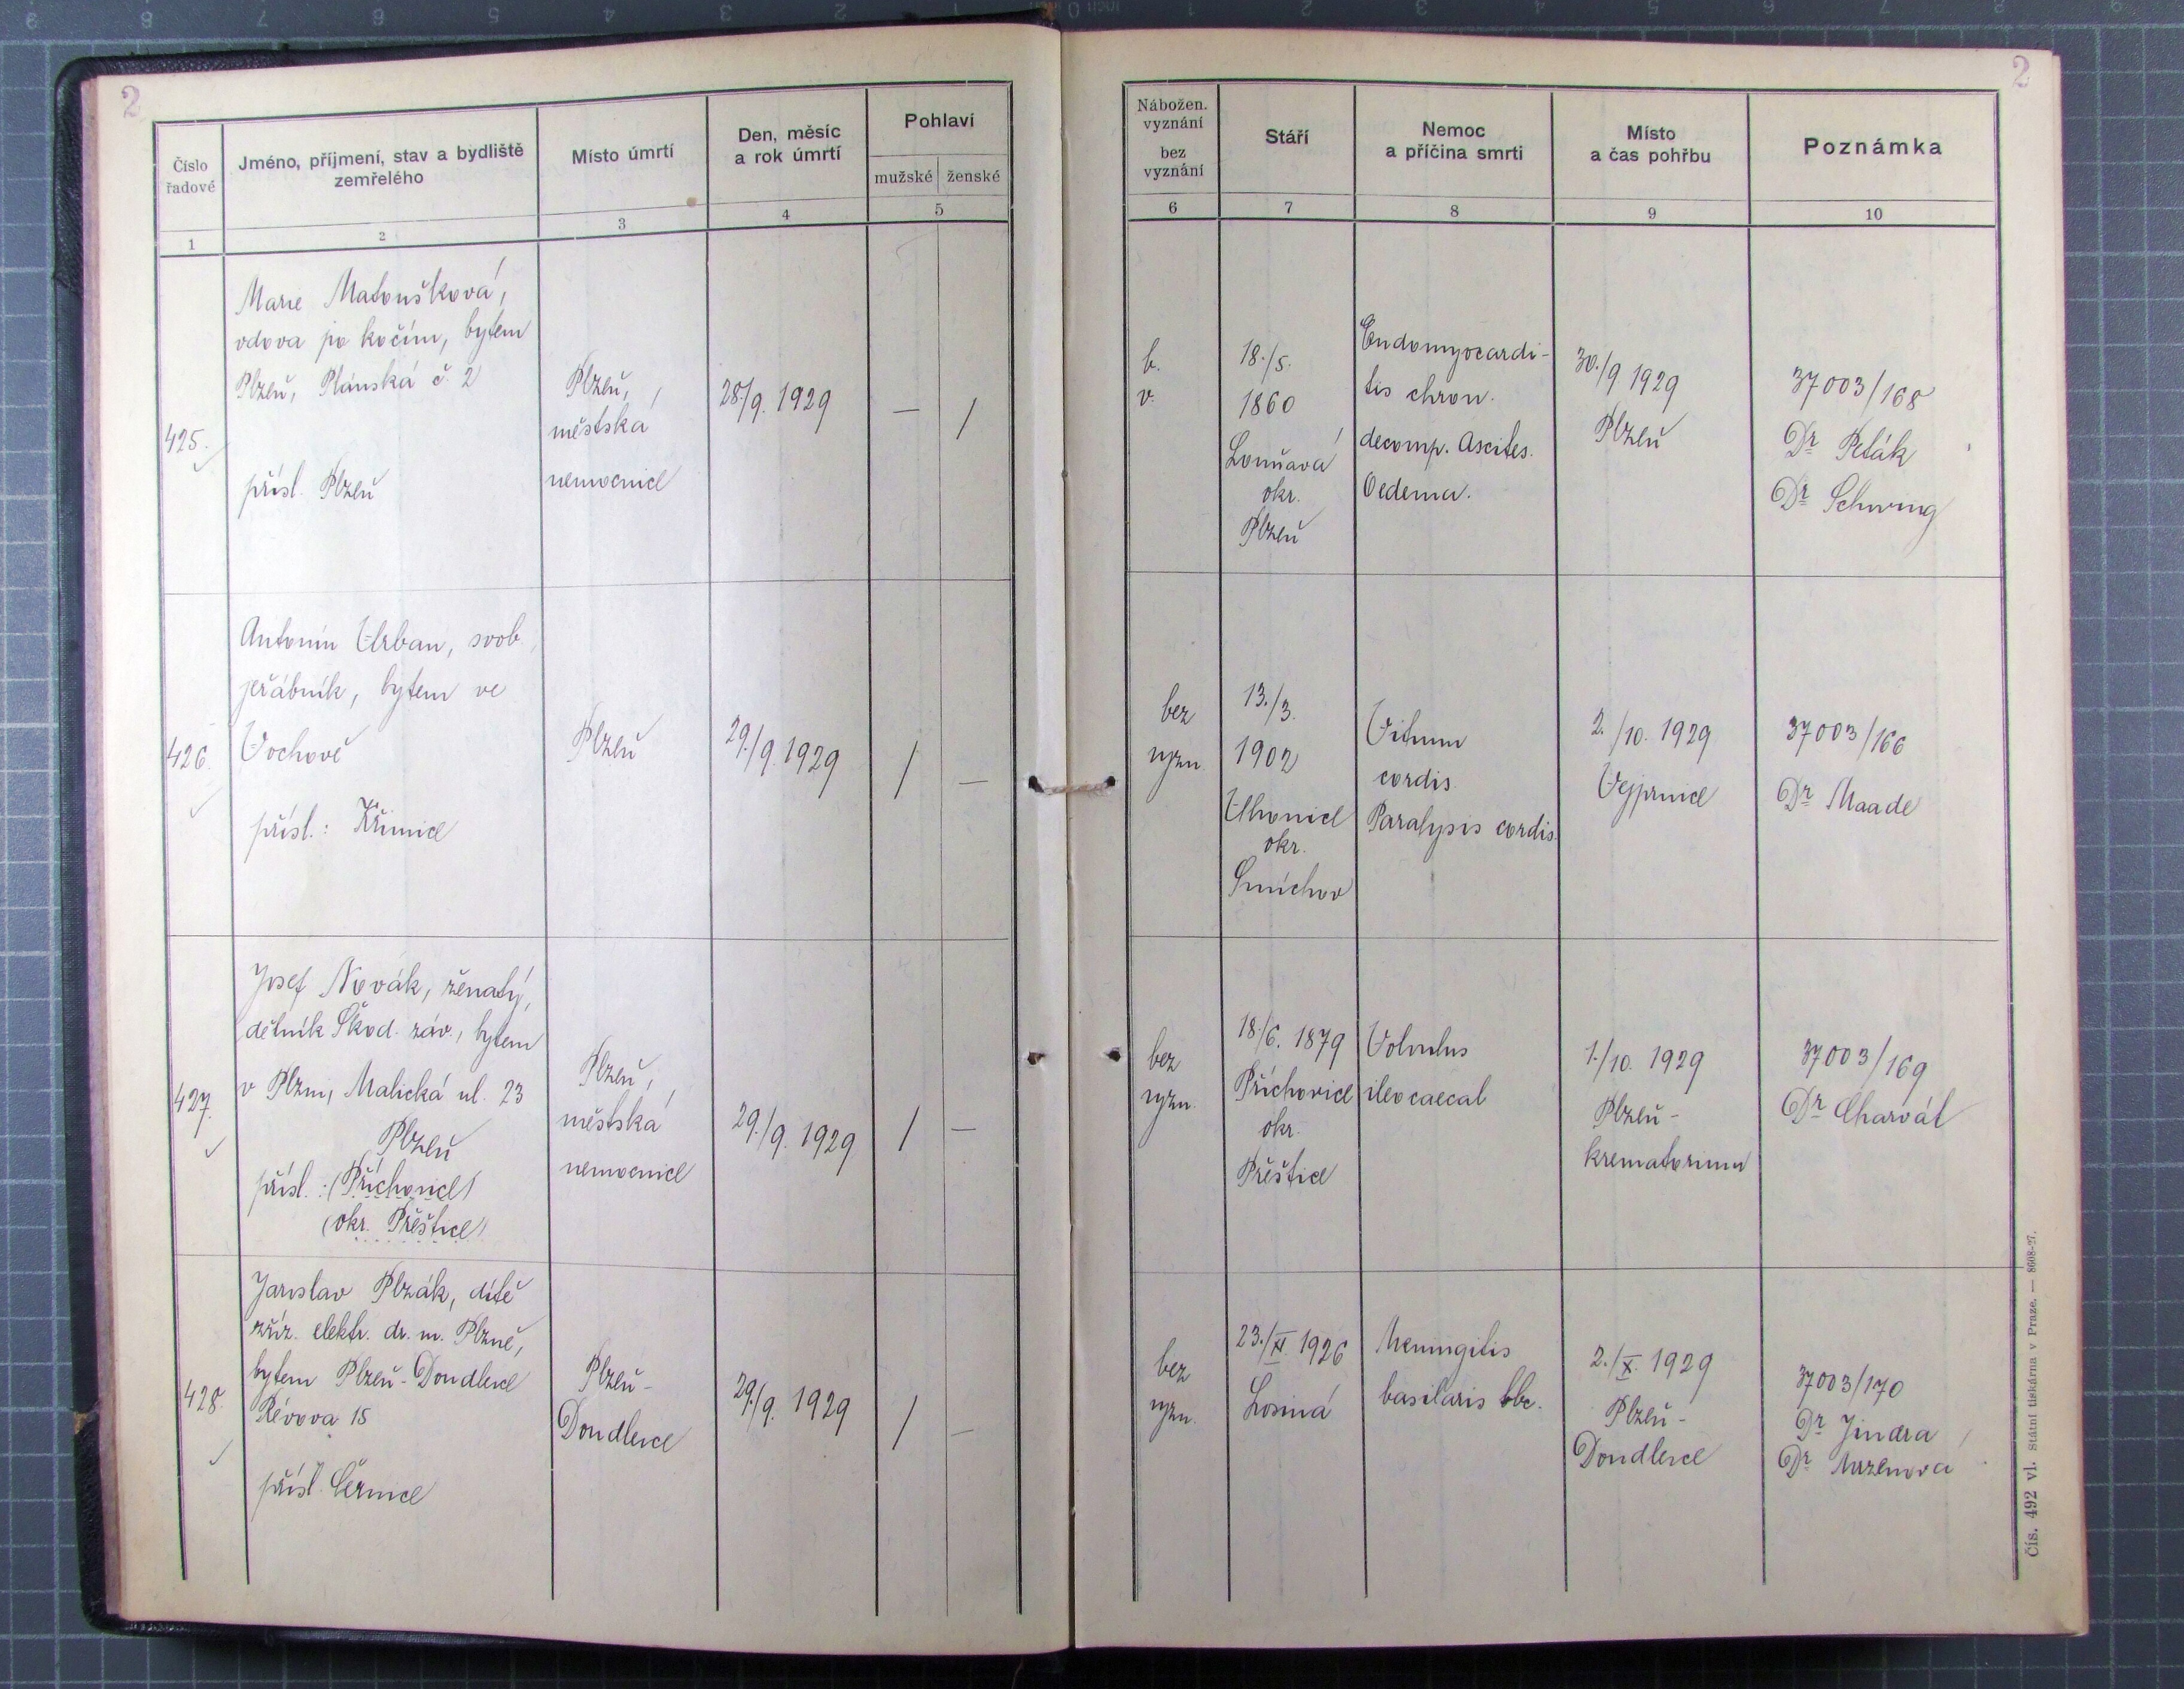 2
Číslo
řadové
Jméno, příjmení, stav a bydliště
zemřelého
Místo úmrtí
Den, měsíc
a rok úmrtí
Pohlaví
mužské ženské
1 2 3 4 5
425.
Marie Matoušková,
vdova po kočím, bytem
Plzeň, Plánská č. 2
přísl. Plzeň
Plzeň,
městská
nemocnice
28./9. 1929
— /
426.
Antonín Urban, svob.
jeřábník, bytem ve
Vochově
přísl.: Křimice
Plzeň
29./9. 1929
/ —
427.
Josef Novák, ženatý,
dělník Škod. záv., bytem
v Plzni, Malická ul. 23
Plzeň
přísl.: (Příchovice)
(okr. Přeštice)
Plzeň,
městská
nemocnice
29./9. 1929
/ —
428.
Jaroslav Plzák, dítě
zříz. elektr. dr. m. Plzně,
bytem Plzeň-Doudlevce
Révova 15
přísl. Černice
Plzeň-
Doudlevce
29./9. 1929
/ —
2
Nábožen.
vyznání
bez
vyznání
Stáří
Nemoc
a příčina smrti
Místo
a čas pohřbu
Poznámka
6 7 8 9 10
b.
v.
18./5.
1860
okr.
Plzeň
Endomyocardi-
tis chron.
decomp. Ascites.
Oedema.
30./9 1929
Plzeň
37003/168
Dr Peták
Dr Schwing
bez
vyzn.
13./3.
1902
Úhonice
okr.
Smíchov
Vitium
cordis.
Paralysis cordis.
2./10. 1929
Vejprnice
37003/166
Dr Maade
bez
vyzn.
18./6. 1879
Příchovice
okr.
Přeštice
Volvulus
ileocaecal
1./10. 1929
Plzeň-
krematorium
37003/169
Dr Charvát
bez
vyzn.
23./XI. 1926
Losiná
Meningitis
basilaris tbc.
2./X. 1929
Plzeň-
Doudlevce
37003/170
Dr Jindra
Dr
Čís. 492 vl. Státní tiskárna v Praze. — 8608-27.